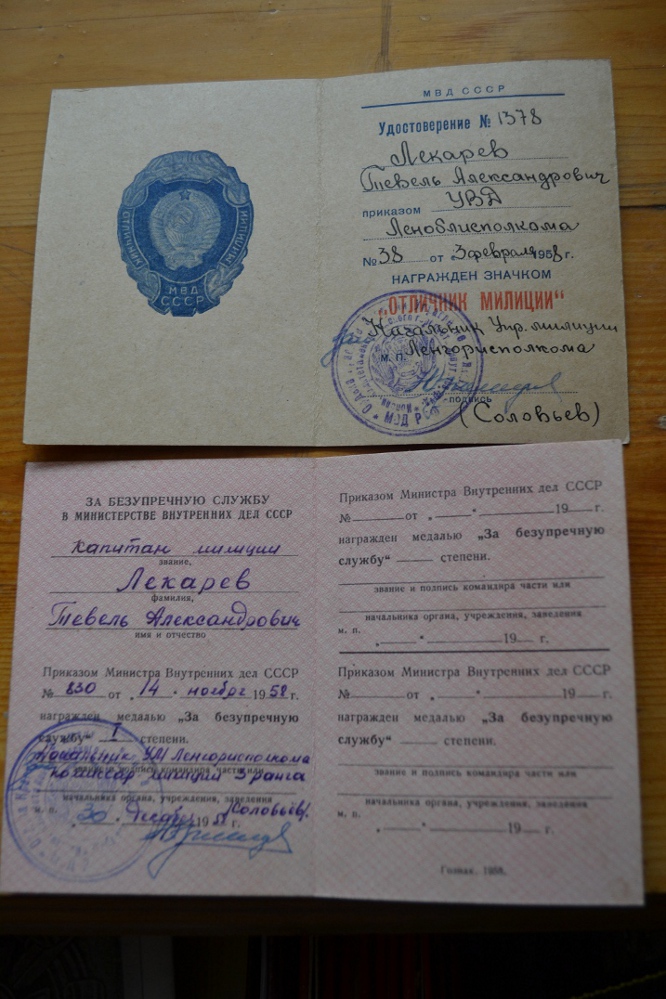 ОТЛИЧНИК МИЛИЦИИ
МВД
СССР
МВД СССР
Удостоверение № 1378
Лекарев
Тевель Александрович
приказом УВД
Леноблисполкома
№ 38 от „3 февраля 1958 г.
НАГРАЖДЕН ЗНАЧКОМ
"ОТЛИЧНИК МИЛИЦИИ"
Начальник Упр. милиции
м. п. Ленгорисполкома
подпись
(Соловьев)
ЗА БЕЗУПРЕЧНУЮ СЛУЖБУ
В МИНИСТЕРСТВЕ ВНУТРЕННИХ ДЕЛ СССР
Капитан милиции
звание,
Лекарев
фамилия,
Тевель Александрович
имя и отчество
Приказом Министра Внутренних дел СССР
№ 830 от „14" ноября 1958 г.
награжден медалью „За безупречную
службу" I степени.
Начальник УМ Ленгорисполкома
звание и подпись командира части или
комиссар милиции 3 ранга
начальника органа, учреждения, заведения
м. п. „30" декабря 195 г. /Соловьев/
Приказом Министра Внутренних дел СССР
№ от „ " 19 г.
награжден медалью „За безупречную
службу" степени.
звание и подпись командира части или
начальника органа, учреждения, заведения
м. п. „ " 19 г.
Приказом Министра Внутренних дел СССР
№ от „ " 19 г.
награжден медалью „За безупречную
службу" степени.
звание и подпись командира части или
начальника органа, учреждения, заведения
м. п. „ " 19 г.
Гознак. 1958.